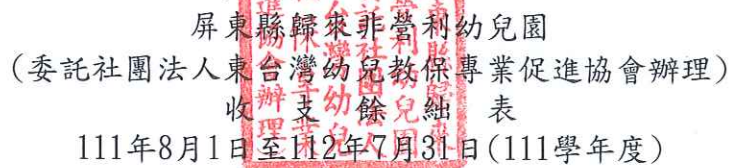 屏東縣歸來非營利幼兒園
(委託社團法人東台灣幼兒教保專業促進協會辦理)
收支餘絀表
111年8月1日至112年7月31日(111學年度)